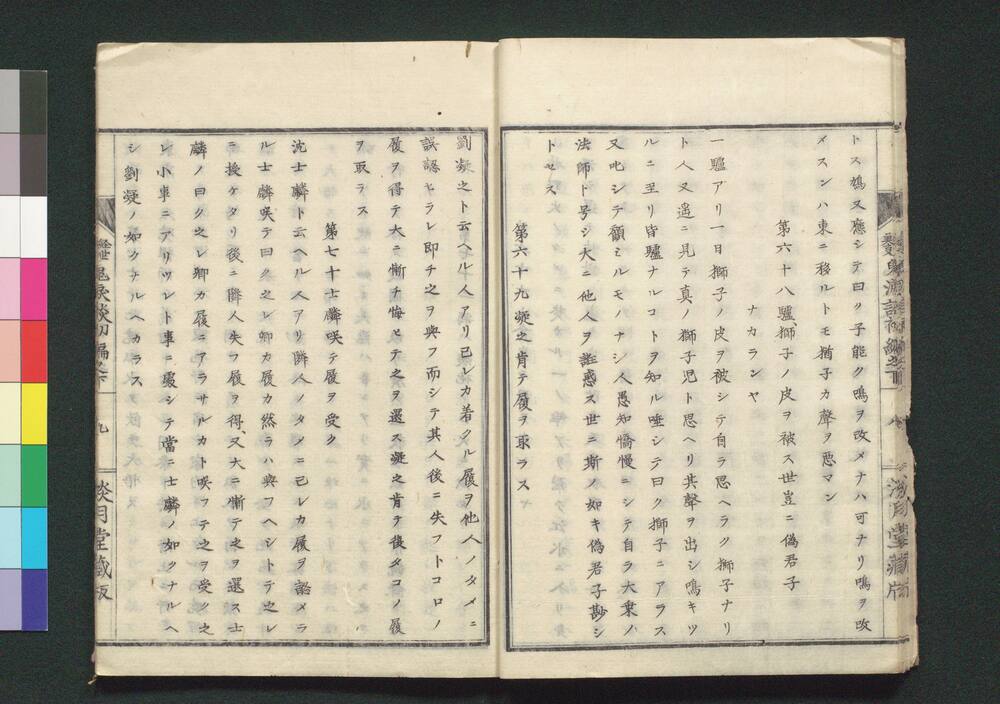 トス鳩又應シテ曰ク子能ク鳴ヲ改メナハ可ナリ鳴ヲ改
メスンハ東ニ移ルトモ猶子カ聲ヲ悪マン
第六十八驢獅子ノ皮ヲ被ス世豈ニ偽君子
ナカランヤ
一驢アリ一日獅子ノ皮ヲ被シテ自ラ思ヘラク獅子ナリ
ト人又遥ニ見テ真ノ獅子児ト思ヘリ其聲ヲ出シ鳴キツ
ルニ至リ皆驢ナルコトヲ知ル唾シテ曰ク獅子ニアラス
又叱シテ顧ミルモノナシ人愚知憍慢ニシテ自ラ大乗ノ
法師ト号シ大ニ他人ヲ誑惑ス世ニ斯ノ如キ偽君子尠シ
トセス
第六十九凝之肯テ履ヲ取ラス
劉凝之ト云ヘル人アリ己レカ着クル履ヲ他人ノタメニ
誤認セラレ即チ之ヲ與フ而シテ其人後ニ失フトコロノ
履ヲ得テ大ニ慚チ悔ヒテ之ヲ還ス凝之肯テ復タコノ履
ヲ取ラス
第七十士麟咲テ履ヲ受ク
沈士麟ト云ヘル人アリ隣人ノタメニ己レカ履ヲ認メラ
ル士麟咲テ曰ク之レ卿カ履カ然ラハ與フヘシトテ之レ
ニ授ケタリ後ニ隣人失フ履ヲ得、又大ニ慚テ之ヲ還ス士
麟ノ曰ク之レ卿カ履ニアラサルカト咲フテ之ヲ受ク之
レ小事ニアリツレト事ニ處シテ當ニ士麟ノ如クナルヘ
シ劉凝ノ如クナルヘカラス
九
談月堂藏版